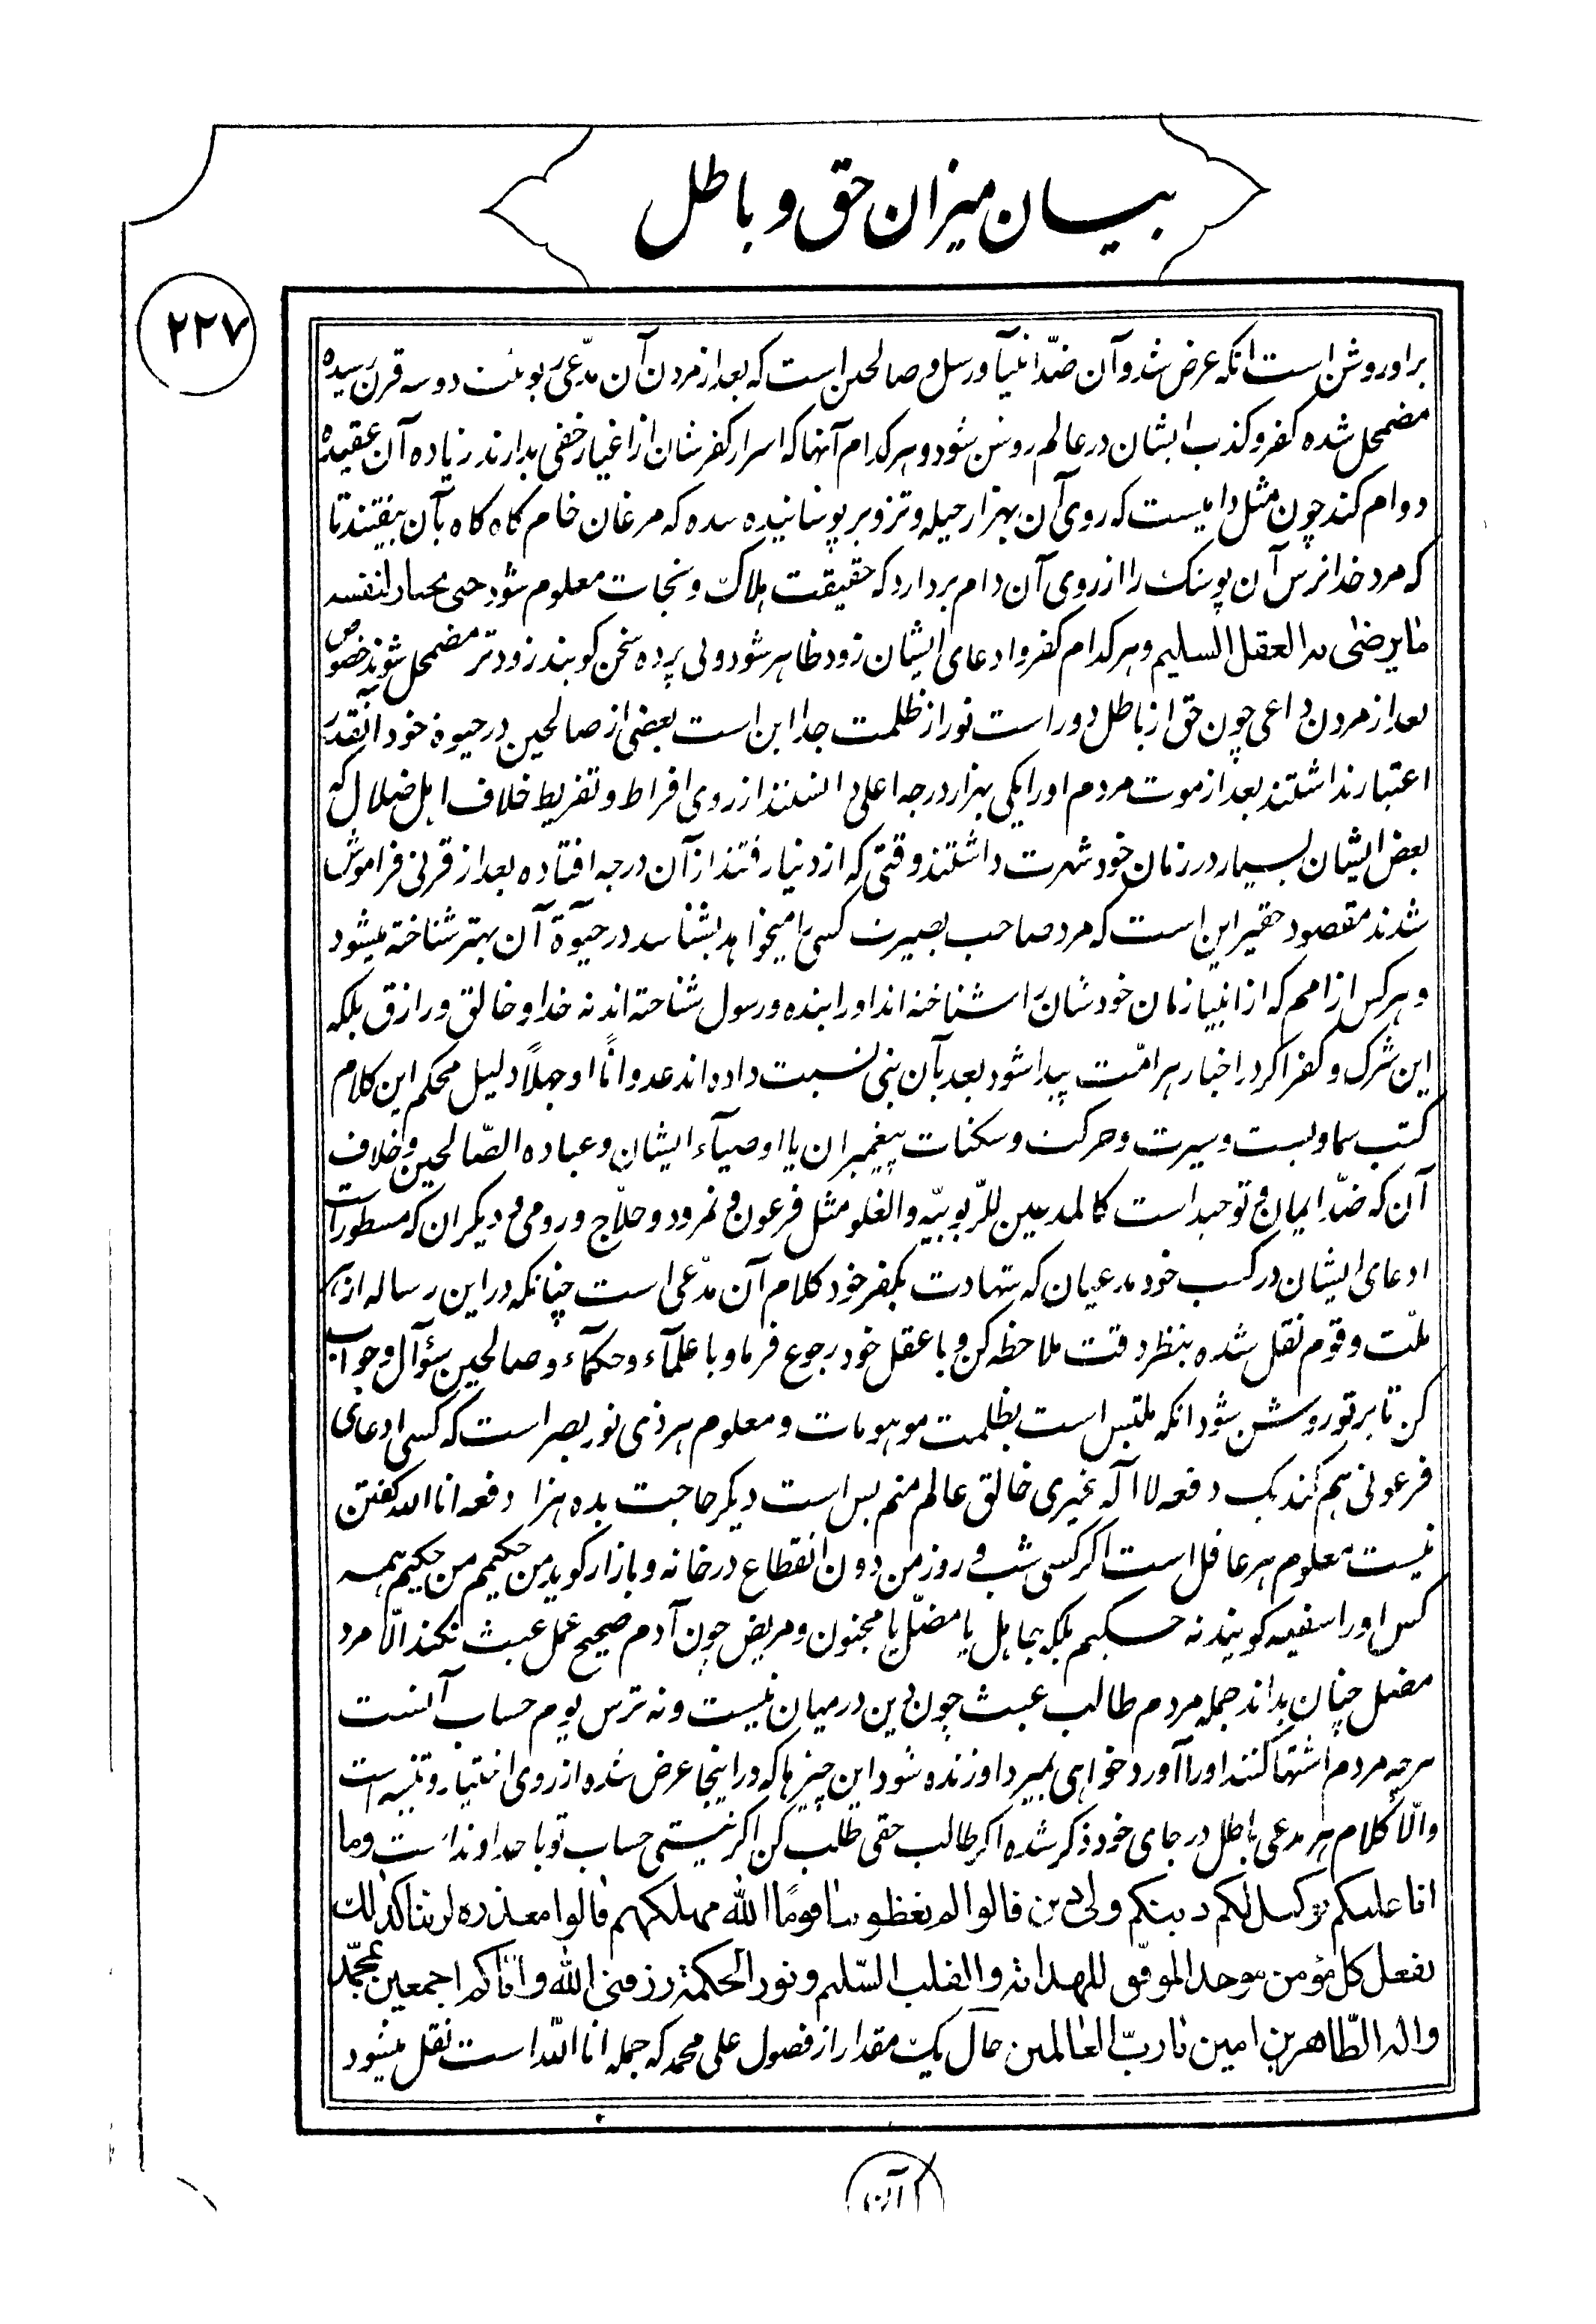 بیان میزان حق و باطل
۲۲۷
بر او روشن است انکه عرض شد و آن ضدّ انبیآ و رسل و صالحین است که بعد از مردن آن مدّعی ربوبیت دو سه قرن رسیده
مضمحل شده کفر و کذب ایشان در عالم روشن شود و هر کدام آنها که اسرار کفرشان از اغیار خفی بدارند زیاده آن عقیده
دوام کند چون مثل دامیست که روی آن بهزار حیله و تزویر پوشانیده شده که مرغان خام کاه کاه بآن بیفتند تا
که مرد خدا ترس آن پوشک را از روی آن دام بردارد که حقیقت هلاکت و نجات معلوم شود حتی یختار لنفسه
مایرضی به العقل السلیم و هر کدام کفر و ادعای ایشان زود ظاهر شود ولی پرده سخن کویند زودتر مضمحل شوند خصوص
بعد از مردن داعی چون حق از باطل دور است نور از ظلمت جدا این است بعضی از صالحین در حیوة خود آنقدر
اعتبار نداشتند بعد از موت مردم او را یکی بهزار درجه اعلی دانستند از روی افراط و تفریط خلاف اهل ضلال که
بعض ایشان بسیار در زمان خود شهرت داشتند وقتی که از دنیا رفتند از آن درجه افتاده بعد از قرنی فراموش
شدند مقصود حقیر این است که مرد صاحب بصیرت کسی را میخواهد بشناسد در حیوة آن بهتر شناخته میشود
و هر کس از امم که از انبیا زمان خودشان را شناخته اند او را بنده و رسول شناخته اند نه خدا و خالق و رازق بلکه
این شرک و کفر اکر در اخبار هر امّت پیدا شود بعد بآن بنی نسبت داده اند عدوانًا او جهلاً دلیل محکم این کلام
کتب سماویست و سیرت و حرکت و سکنات پیغمبران یا اوصیآء ایشان و عباده الصّالحین و خلاف
آن که ضدّ ایمان و توحید است کالمدعین للرّبوبیّه و الغلو مثل فرعون و نمرود و حلّاج و رومی و دیکران که مسطورات
ادعای ایشان در کتب خود مدعیان که شهادت بکفر خود کلام آن مدّعی است چنانکه در این رساله از هر
ملّت و قوم نقل شده بنظر دقت ملاحظه کن و با عقل خود رجوع فرما و با علمآء و حکمآء و صالحین سؤآل و جواب
کن تا بر تو روشن شود انکه ملتبس است بظلمت موهومات و معلوم هر ذی نور بصر است که کسی ادعای
فرعونی هم کند یک دفعه لا اله غیری خالق عالم منم بس است دیکر حاجت بده هزار دفعه انا الله کفتن
نیست معلوم هر عاقل است اکر کسی شب و روز من دون انقطاع در خانه و بازار کوید من حکیمم من حکیم همه
کس او را سفیه کویند نه حکیم بلکه جاهل یا مضلّ یا مجنون و مریض چون آدم صحیح عمل عبث نکند الّا مرد
مضل چنان بداند جمله مردم طالب عبث چون دین در میان نیست و نه ترس یوم حساب آنست
هر چه مردم اشتها کنند او را آورد خواهی بمیرد او زنده شود این چیزها که در اینجا عرض شده از روی اختیار و تنبیه است
والّا کلام هر مدعی باطل در جای خود ذکر شده اکر طالب حقی طلب کن اکر نیستی حساب تو با خداوند است وما
انا علیکم بوکیل لکم دینکم ولی دین قالوا لم تعظون قومًا الله مهلکهم قالوا معذرة لربنا کذلک
یفعل کل مؤمن موحد الموفّق للهدایة و القلب السّلیم و نور الحکمة رزقنی الله و ایّاکم اجمعین بمحمّد
واله الطّاهرین امین یا ربّ العالمین حال یک مقدار از فصول علی محمد که جمله انا الله است نقل میشود
آن